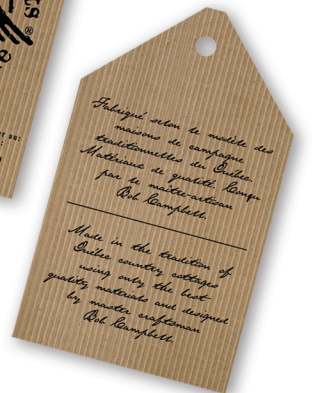 ts®
e
Fabriqué selon le modèle des
maisons de campagne
traditionnelles du Québec.
Matériaux de qualité. Conçu
par le maître-artisan
Bob Campbell.
Made in the tradition of
Québec country cottages
using only the best
quality materials and designed
by master craftsman
Bob Campbell.